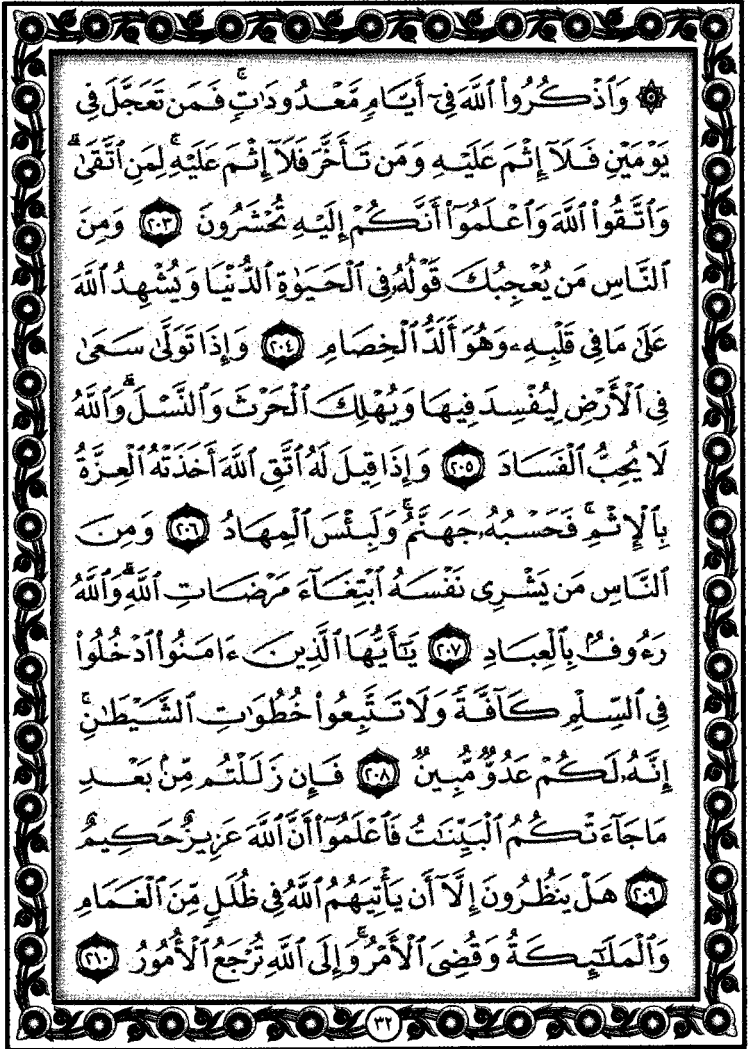 ۞ وَٱذْكُرُوا۟ ٱللَّهَ فِىٓ أَيَّامٍ مَّعْدُودَٰتٍ ۚ فَمَن تَعَجَّلَ فِى
يَوْمَيْنِ فَلَآ إِثْمَ عَلَيْهِ وَمَن تَأَخَّرَ فَلَآ إِثْمَ عَلَيْهِ ۚ لِمَنِ ٱتَّقَىٰ ۗ
وَٱتَّقُوا۟ ٱللَّهَ وَٱعْلَمُوٓا۟ أَنَّكُمْ إِلَيْهِ تُحْشَرُونَ ٢٠٣ وَمِنَ
ٱلنَّاسِ مَن يُعْجِبُكَ قَوْلُهُۥ فِى ٱلْحَيَوٰةِ ٱلدُّنْيَا وَيُشْهِدُ ٱللَّهَ
عَلَىٰ مَا فِى قَلْبِهِۦ وَهُوَ أَلَدُّ ٱلْخِصَامِ ٢٠٤ وَإِذَا تَوَلَّىٰ سَعَىٰ
فِى ٱلْأَرْضِ لِيُفْسِدَ فِيهَا وَيُهْلِكَ ٱلْحَرْثَ وَٱلنَّسْلَ ۗ وَٱللَّهُ
لَا يُحِبُّ ٱلْفَسَادَ ٢٠٥ وَإِذَا قِيلَ لَهُ ٱتَّقِ ٱللَّهَ أَخَذَتْهُ ٱلْعِزَّةُ
بِٱلْإِثْمِ ۚ فَحَسْبُهُۥ جَهَنَّمُ ۚ وَلَبِئْسَ ٱلْمِهَادُ ٢٠٦ وَمِنَ
ٱلنَّاسِ مَن يَشْرِى نَفْسَهُ ٱبْتِغَآءَ مَرْضَاتِ ٱللَّهِ ۗ وَٱللَّهُ
رَءُوفٌۢ بِٱلْعِبَادِ ٢٠٧ يَٰٓأَيُّهَا ٱلَّذِينَ ءَامَنُوا۟ ٱدْخُلُوا۟
فِى ٱلسِّلْمِ كَآفَّةً وَلَا تَتَّبِعُوا۟ خُطُوَٰتِ ٱلشَّيْطَٰنِ ۚ
إِنَّهُۥ لَكُمْ عَدُوٌّ مُّبِينٌ ٢٠٨ فَإِن زَلَلْتُم مِّنۢ بَعْدِ
مَا جَآءَتْكُمُ ٱلْبَيِّنَٰتُ فَٱعْلَمُوٓا۟ أَنَّ ٱللَّهَ عَزِيزٌ حَكِيمٌ
٢٠٩ هَلْ يَنظُرُونَ إِلَّآ أَن يَأْتِيَهُمُ ٱللَّهُ فِى ظُلَلٍ مِّنَ ٱلْغَمَامِ
وَٱلْمَلَٰٓئِكَةُ وَقُضِىَ ٱلْأَمْرُ ۚ وَإِلَى ٱللَّهِ تُرْجَعُ ٱلْأُمُورُ ٢١٠
٣٢